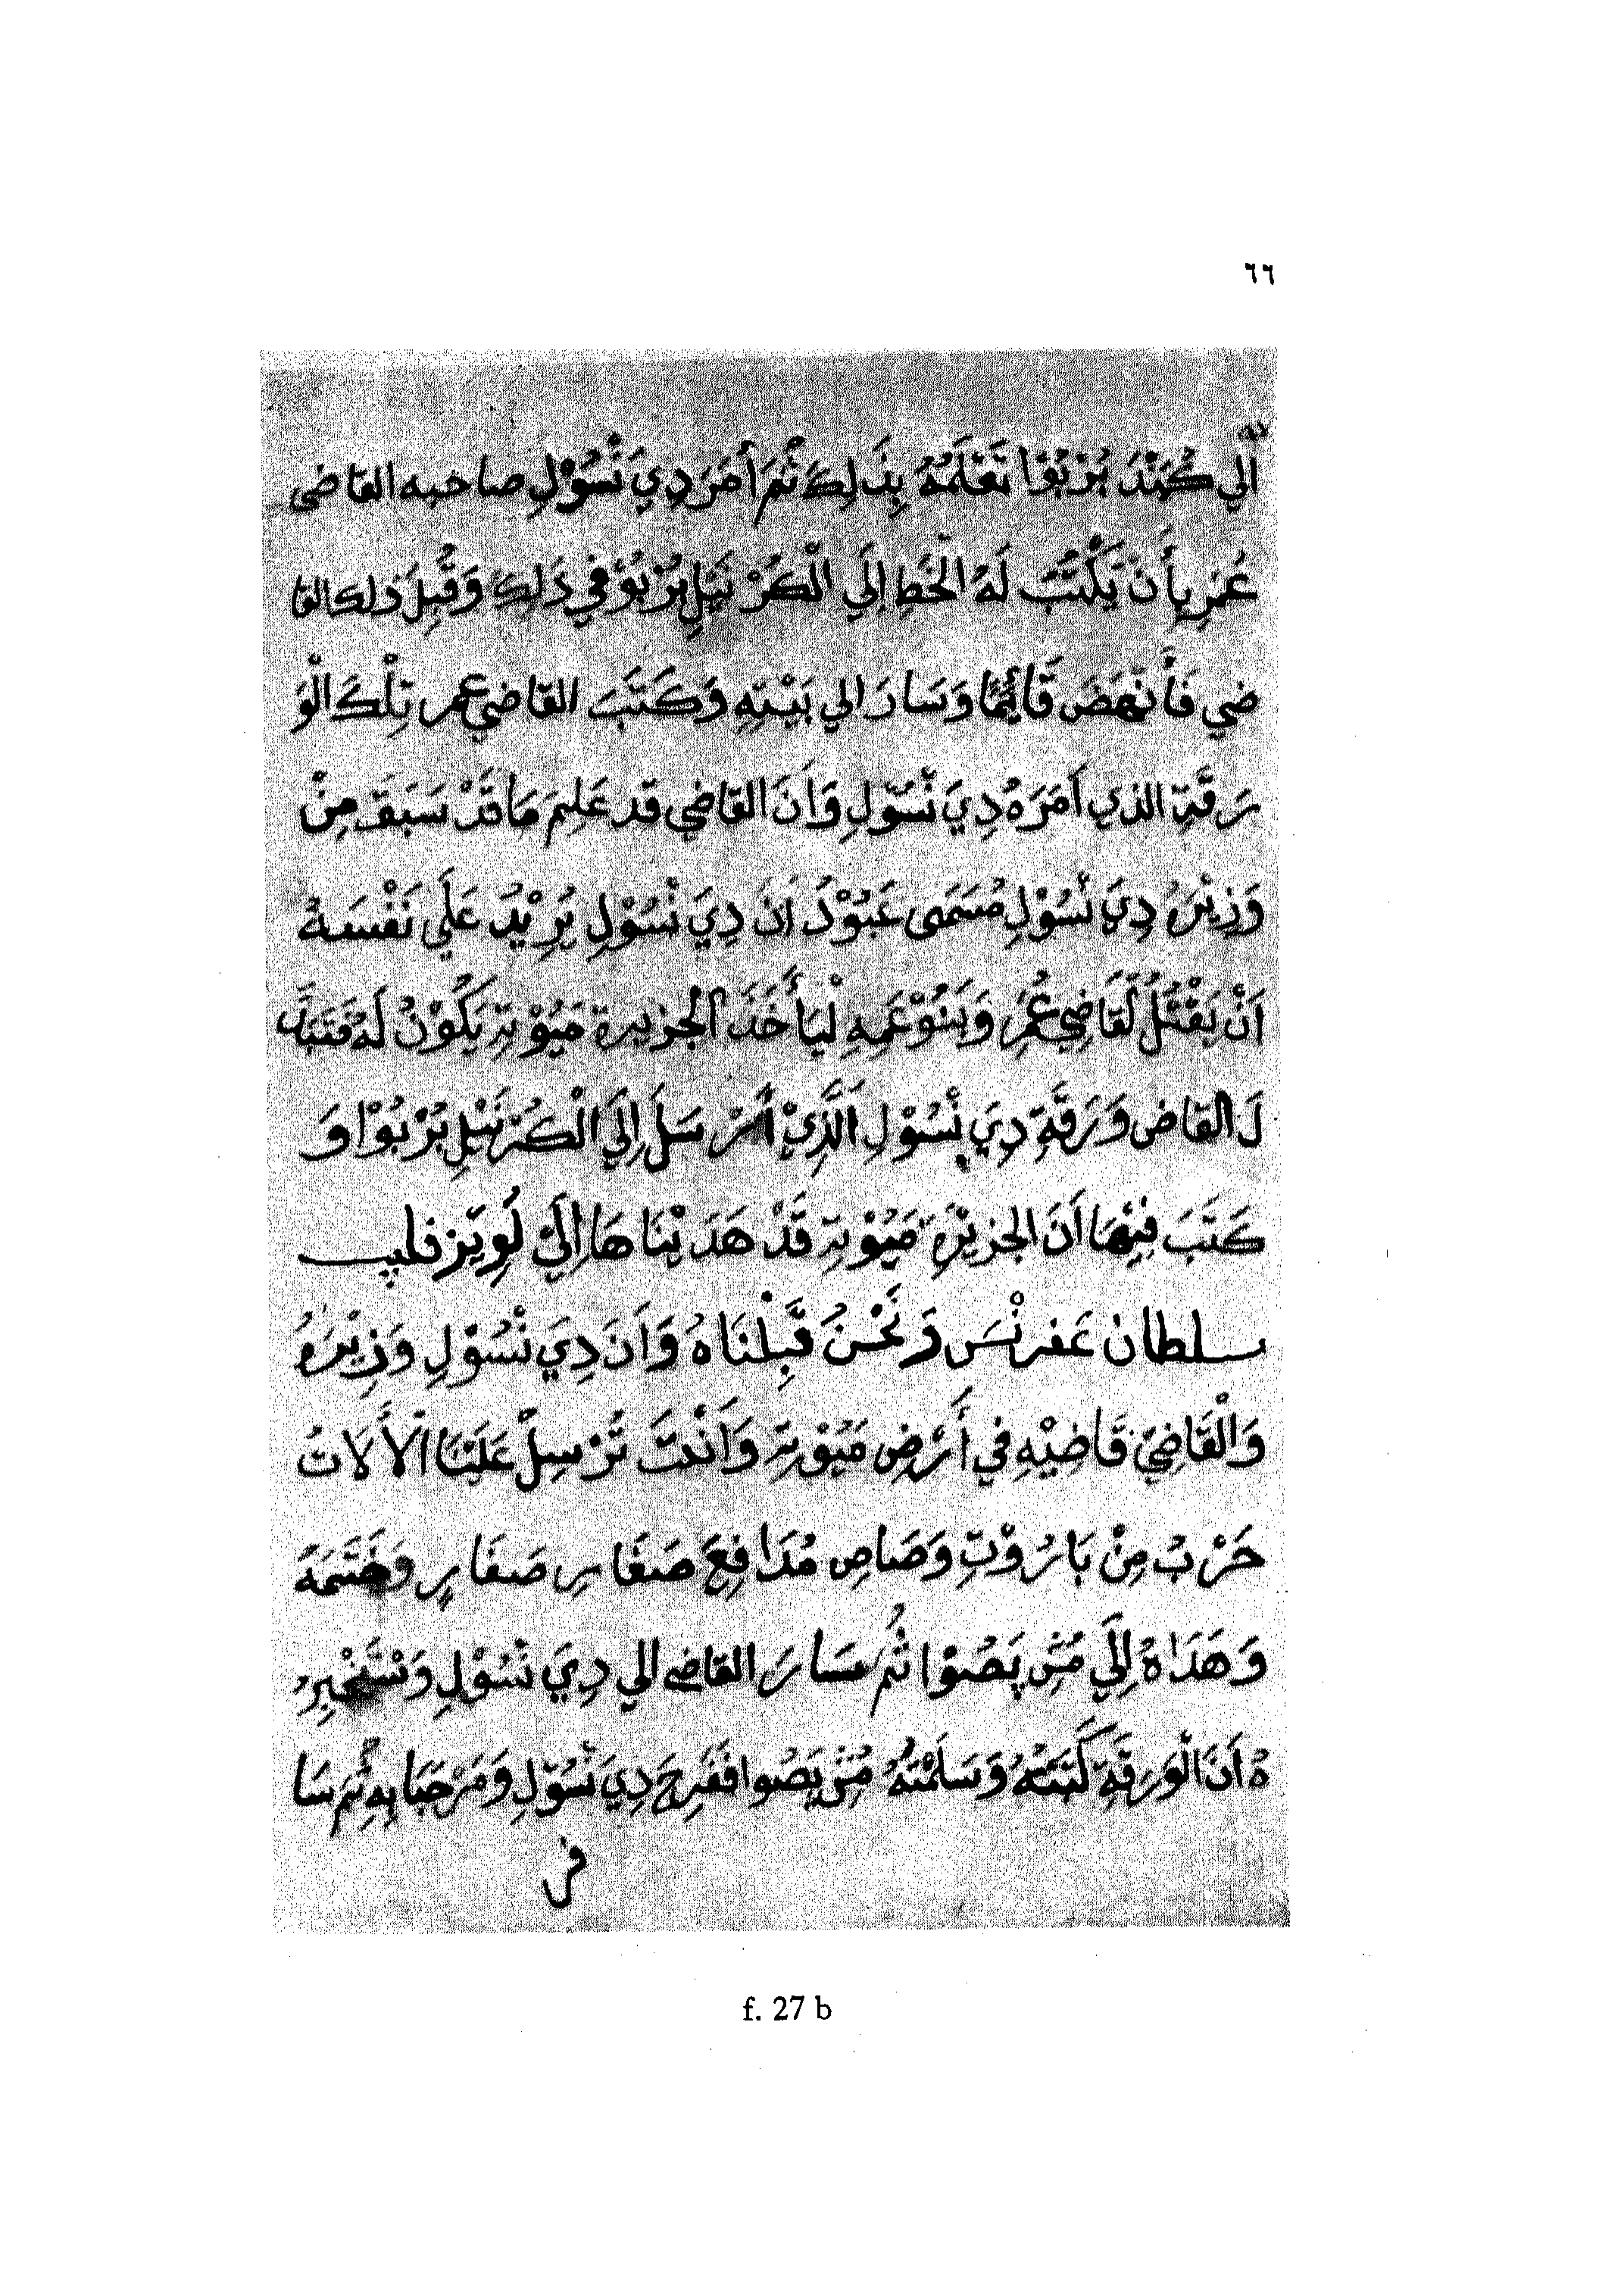 ٦٦
الي كُمَنْدَ بُرْبُوْا تَعْلَمُهُ بِذَلِكَ ثُمَّ أَمَرَ دِيَ نْسُوْلِ صاحبه القاضى
عُمَرِ بِأَنْ يَكْتُبَ لَهُ الْخَط اِلَي الْكُرْنَيْلِ بُرْبُوْ في ذَلِكَ وَقُبِلَ ذلك القا
ضي فَأَنْهَضَ قَائِمًا وَسَارَ الي بَيْتِهِ وَكَتَبَ القاضي عمر تِلْكَ الْوَ
رَقَةِ الذي أَمَرَهُ دِيَ نْسُوْلِ وَاَنَ القاضي قد عَلِمَ مَا قَدْ سَبَقَ مِنْ
وَزِيْرُ دِيَ نْسُوْلِ مُسَمَى عَبُوْدُ اَنَ دِيَ نْسُوْلِ يُرِيْدُ عَلَي نَفْسَهُ
اَنْ يَقْتُلُ لَقَاضِي عُمَرِ وَبَنُوْ عَمِهِ لْيَأْخَذَ الجزيرة مَيُوْتِةِ يَكُوْنُ لَهُ فَقَبَدَّ
لَ القاض وَرَقَةِ دِيَ نْسُوْلِ الَّذِيْ أَرْسَلَ اِلَي الْكُرْنَيْلِ بُرْبُوْا وَ
كَتَبَ فِيْهَا اَنَ الجزيْرَةِ مَيُوْتِة قَدْ هَدَيْنَا هَا اِلَيْ لُوِيْز فليب
سلطان عَفرنْسَ وَنَحْنُ قَبِلْنَاهُ وَاَنَ دِيَ نْسُوْلِ وَزِيْرَهُ
وَالْقَاضِيَ قَاضِيْهِ في أَرْضِ مَيُوْتِةِ وَأَنْتَ تُرْسِلْ عَلَيْنَا الْاَلَاتُ
حَرْبُ مِنْ بَارُوْتِ وَصَاصِ مُدَافِعَ صَغَارِ صَغَارٍ وَخَتَمَهُ
وَهَدَاهُ اِلَي مُسْ بَصُوْا ثُمَ سَارَ القاضي الي دِيَ نْسُوْلِ وَسْتَخْبِرِ
هُ اَنَ الْوَرَقَةِ كَتَبْتُهُ وَسَلَمْتُهُ مُسْ بَصُوا فَفَرِحَ دِيَ نْسُوْلِ وَمَرْحَبَا بِهِ ثُمَ سَا
فر
f. 27 b